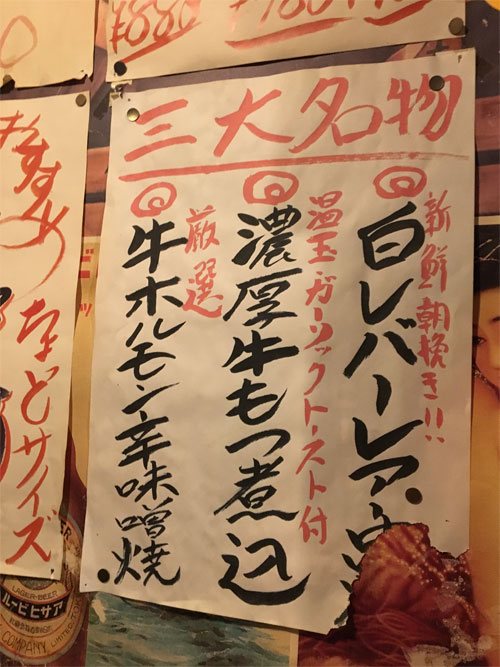 ¥880
¥780
三大名物
新鮮朝挽き!!
白レバーレア
温玉・ガーリックトースト付
濃厚牛もつ煮込
厳選
牛ホルモン辛味噌焼
おすすめ
などサイズ
LAGER-BEER
アサヒビール
COMPANY LIMITED